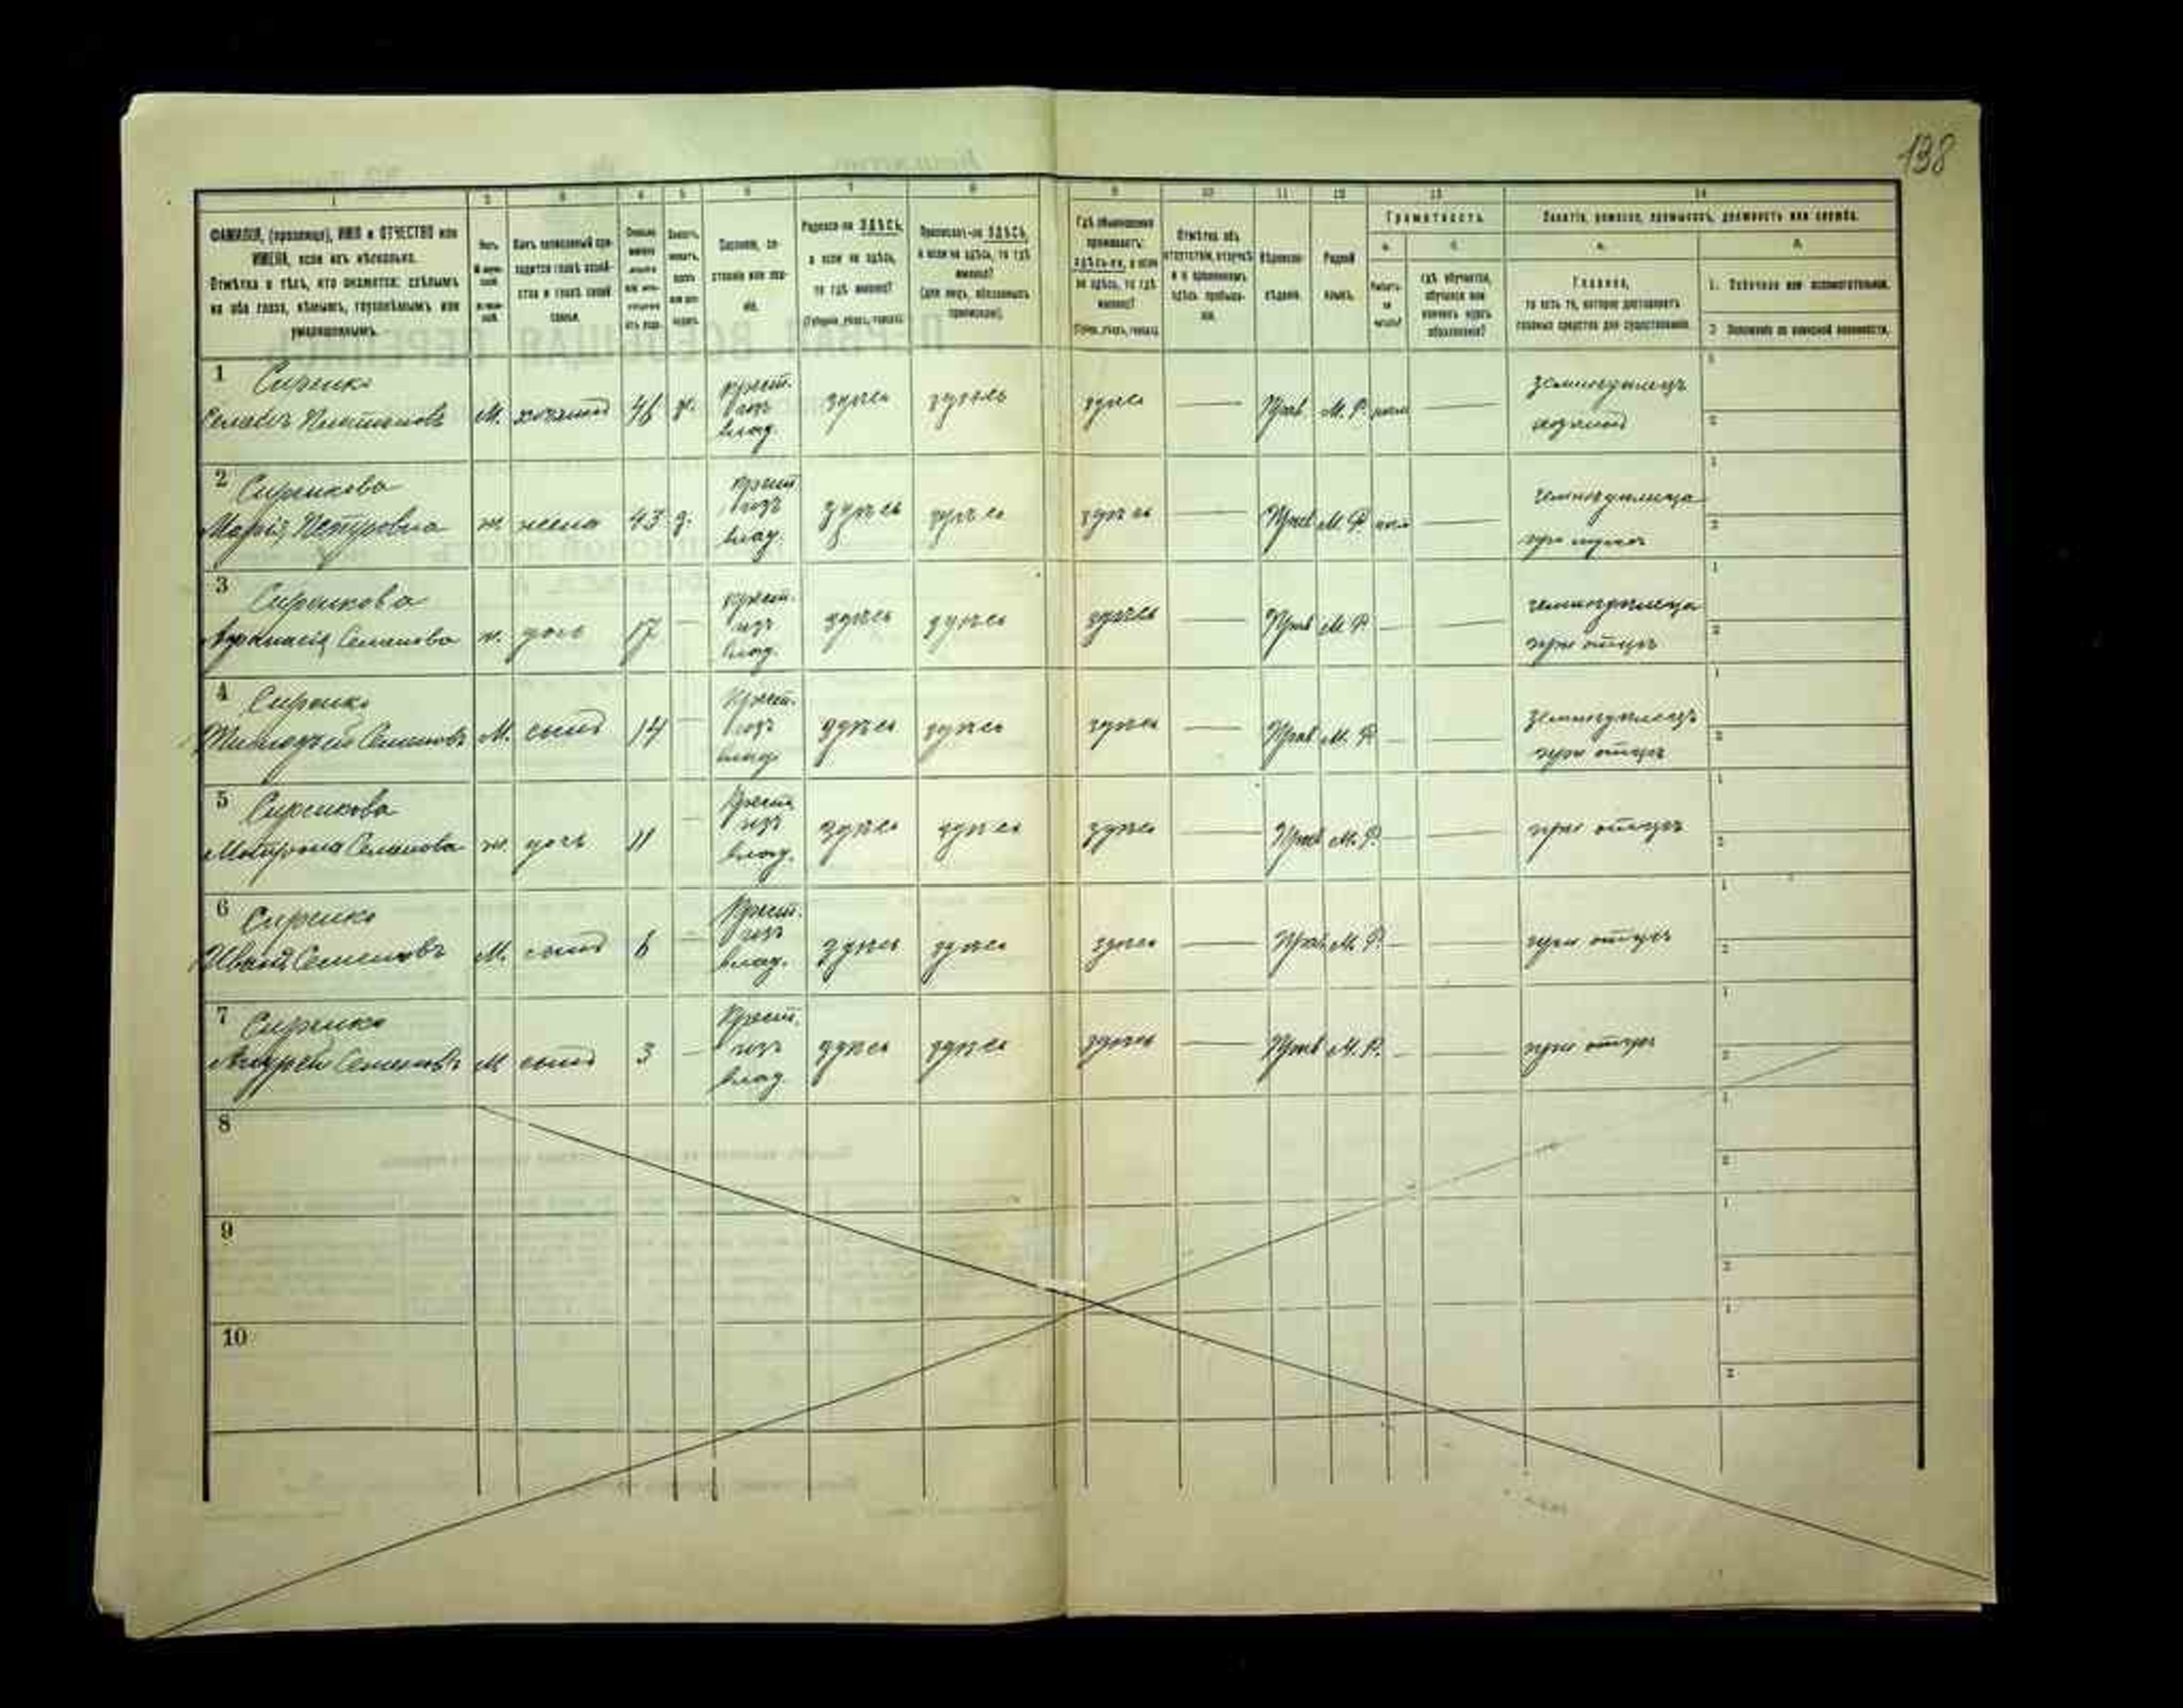 138
1 2 3 4 5 6 7 8 9 10 11 12 13 14
ФАМИЛІЯ, (прозвище), ИМЯ и ОТЧЕСТВО или
ИМЕНА, если ихъ нѣсколько.
Отмѣтка о тѣхъ, кто окажется: слѣпымъ
на оба глаза, нѣмымъ, глухонѣмымъ или
умалишеннымъ.
Полъ.
Какъ записанный при-
ходится главѣ хозяй-
ства и главѣ своей
семьи.
Сословіе, со-
стояніе или зва-
ніе.
Родился-ли ЗДѢСЬ,
а если не здѣсь,
то гдѣ именно?
(Губернія, уѣздъ, городъ).
Приписанъ-ли ЗДѢСЬ,
а если не здѣсь, то гдѣ
именно?
(для лицъ, обязанныхъ
припискою).
Гдѣ обыкновенно
проживаетъ:
здѣсь-ли, а если
не здѣсь, то гдѣ
именно?
(Губ., уѣздъ, городъ).
Отмѣтка объ
отсутствіи, отлучкѣ
и о временномъ
здѣсь пребыва-
ніи.
Вѣроиспо-
вѣданіе.
Родной
языкъ.
Грамотность.
а. б.
Умѣетъ-
ли
читать?
гдѣ обучается,
обучался или
кончилъ курсъ
образованія?
Занятіе, ремесло, промыселъ, должность или служба.
а. б.
Главное,
то есть то, которое доставляетъ
главныя средства для существованія.
1. Побочное или вспомогательное.
2. Положеніе по воинской повинности.
1 Сиренко
М. хозяинъ 46 ж. крест. изъ влад. здѣсь здѣсь здѣсь — Прав. М. Р. — земледѣлецъ хозяинъ
2 Сиренкова
Марія Петровна ж жена 43 з. крест. изъ влад. здѣсь здѣсь здѣсь — Прав М. Р. — земледѣлица при мужѣ
3 Сиренкова
Семенова ж. дочь 17 — крест. изъ влад. здѣсь здѣсь здѣсь — Прав М. Р. — — земледѣлица при отцѣ
4 Сиренко
Тимофей Семеновъ М. сынъ 14 — Крест. изъ влад. здѣсь здѣсь здѣсь — Прав М. Р. — — земледѣлецъ при отцѣ
5 Сиренкова
Мотрона Семенова ж. дочь 11 — Крест. изъ влад. здѣсь здѣсь здѣсь — Прав М. Р. — — при отцѣ
6 Сиренко
Иванъ Семеновъ М. сынъ 6 — Крест. изъ влад. здѣсь здѣсь здѣсь — Прав. М. Р. — — при отцѣ
7 Сиренко
Андрей Семеновъ М сынъ 3 — Крест. изъ влад. здѣсь здѣсь здѣсь — Прав М. Р. — — при отцѣ
8
9
10